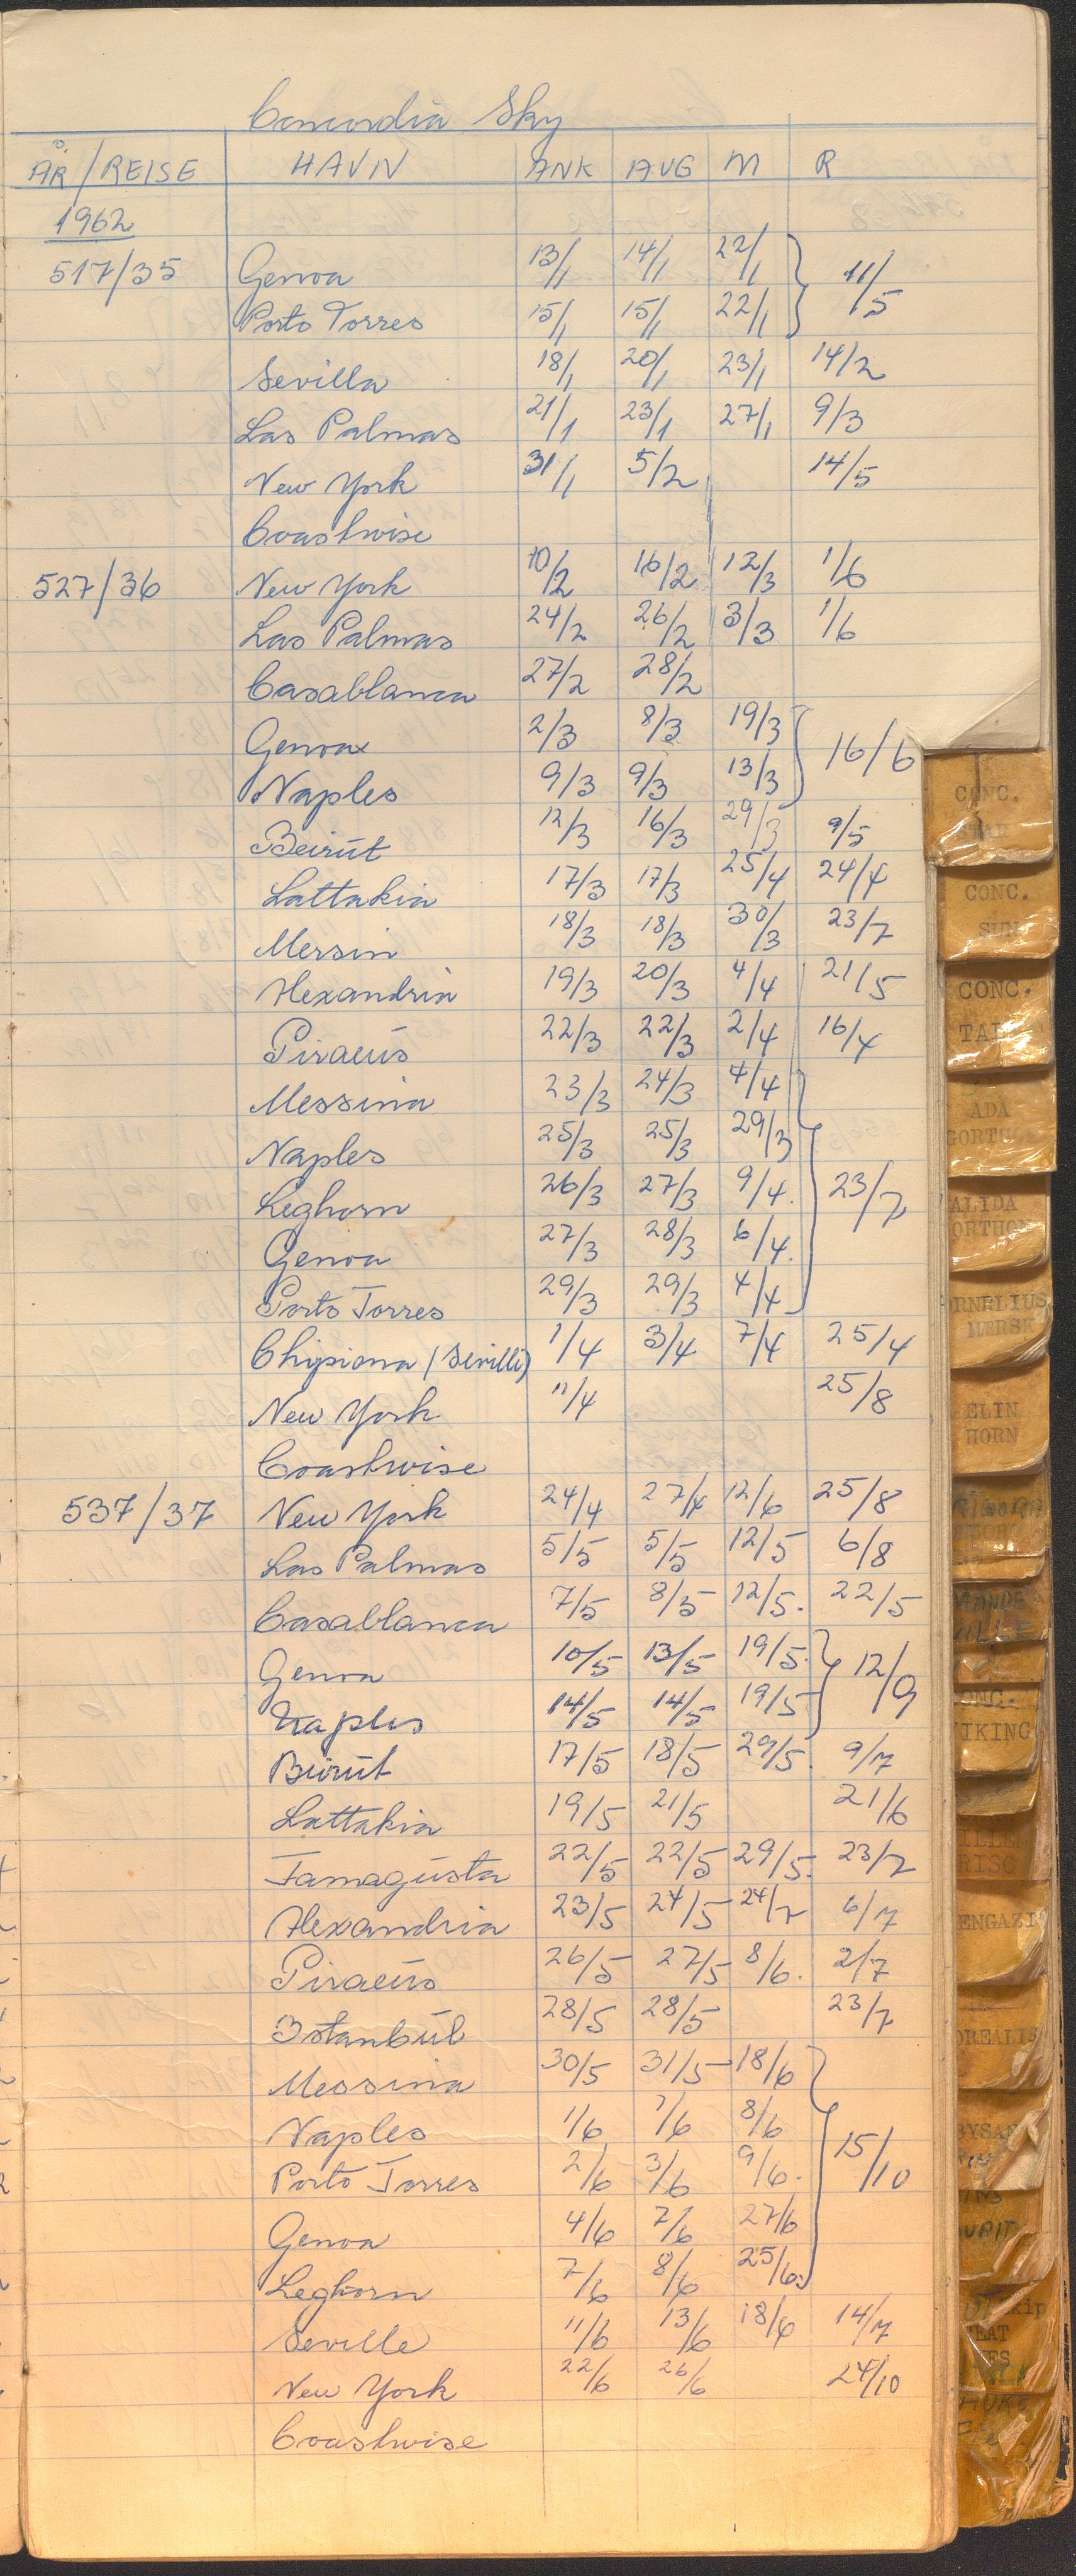 Concordia Sky
ÅR/REISE HAVN ANK AVG M R
1962
517/35 Genoa 13/1 14/1 22/1 } 11/5
Porto Torres 15/1 15/1 22/1
Sevilla 18/1 20/1 23/1 14/2
Las Palmas 21/1 23/1 27/1 9/3
New York 31/1 5/2 14/5
Coastwise
527/36 New York 10/2 16/2 12/3 1/6
Las Palmas 24/2 26/2 3/3 1/6
Casablanca 27/2 28/2
Genoa 2/3 8/3 19/3 } 16/6
Naples 9/3 9/3 13/3
Beirut 12/3 16/3 29/3 9/5
Lattakia 17/3 17/3 25/4 24/4
Mersin 18/3 18/3 30/3 23/7
Alexandria 19/3 20/3 4/4 21/5
Piraeus 22/3 22/3 2/4 16/4
Messina 23/3 24/3 4/4 }
Naples 25/3 25/3 29/3
Leghorn 26/3 27/3 9/4. 23/7
Genoa 27/3 28/3 6/4.
Porto Torres 29/3 29/3 4/4
Chipiona (Sevilli) 1/4 3/4 7/4 25/4
New York 11/4 25/8
Coastwise
537/37 New York 24/4 27/4 12/6 25/8
Las Palmas 5/5 5/5 12/5 6/8
Casablanca 7/5 8/5 12/5. 22/5
Genoa 10/5 13/5 19/5. } 12/9
Naples 14/5 14/5 19/5
Beirut 17/5 18/5 29/5. 9/7
Lattakia 19/5 21/5 21/6
Famagusta 22/5 22/5 29/5. 23/7
Alexandria 23/5 24/5 24/7 6/7
Piraeus 26/5 27/5 8/6. 2/7
Istanbul 28/5 28/5 23/7
Messina 30/5 31/5 18/6 }
Naples 1/6 1/6 8/6
Porto Torres 2/6 3/6 9/6. 15/10
Genoa 4/6 7/6 27/6
Leghorn 7/6 8/6 25/6.
Seville 11/6 13/6 18/6 14/7
New York 22/6 26/6 24/10
Coastwise
CONC.
STAR
CONC.
SUN
CONC.
TAL
ADA
GORTHO
ALIDA
ORTHON
ORNELIUS
MERSK
ELIN
HORN
VIKING
ENGAZI
OREALIS